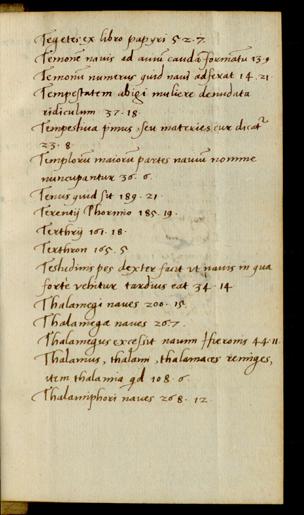 Tegetes ex libro papyri 52.7.
Temone navis ad avium caudā formatū 13.9
Temonū numerus quid navi adferat 14.21
Tempestatem abigi muliere denudata
ridiculum 37.18
Tempestiva pinus, seu materies cur dicat᷑
23.8
Templorū maiorū partes naviū nomine
nuncupantur 36.6.
Tenus quid sit 189.21.
Terentij Phormio 185.19.
Terthrij 161.18.
Terthron 165.5
Testudinis pes dexter facit ut navis in qua
forte vehitur tardius eat 34.14
Thalamegi naves 200.15.
Thalamegæ naves 267.
Thalamegus excessit navim Hieronis 44.11
Thalamus, thalami, thalamaces remiges,
item thalamia qd 108.6.
Thalamiphori naves 268.12.